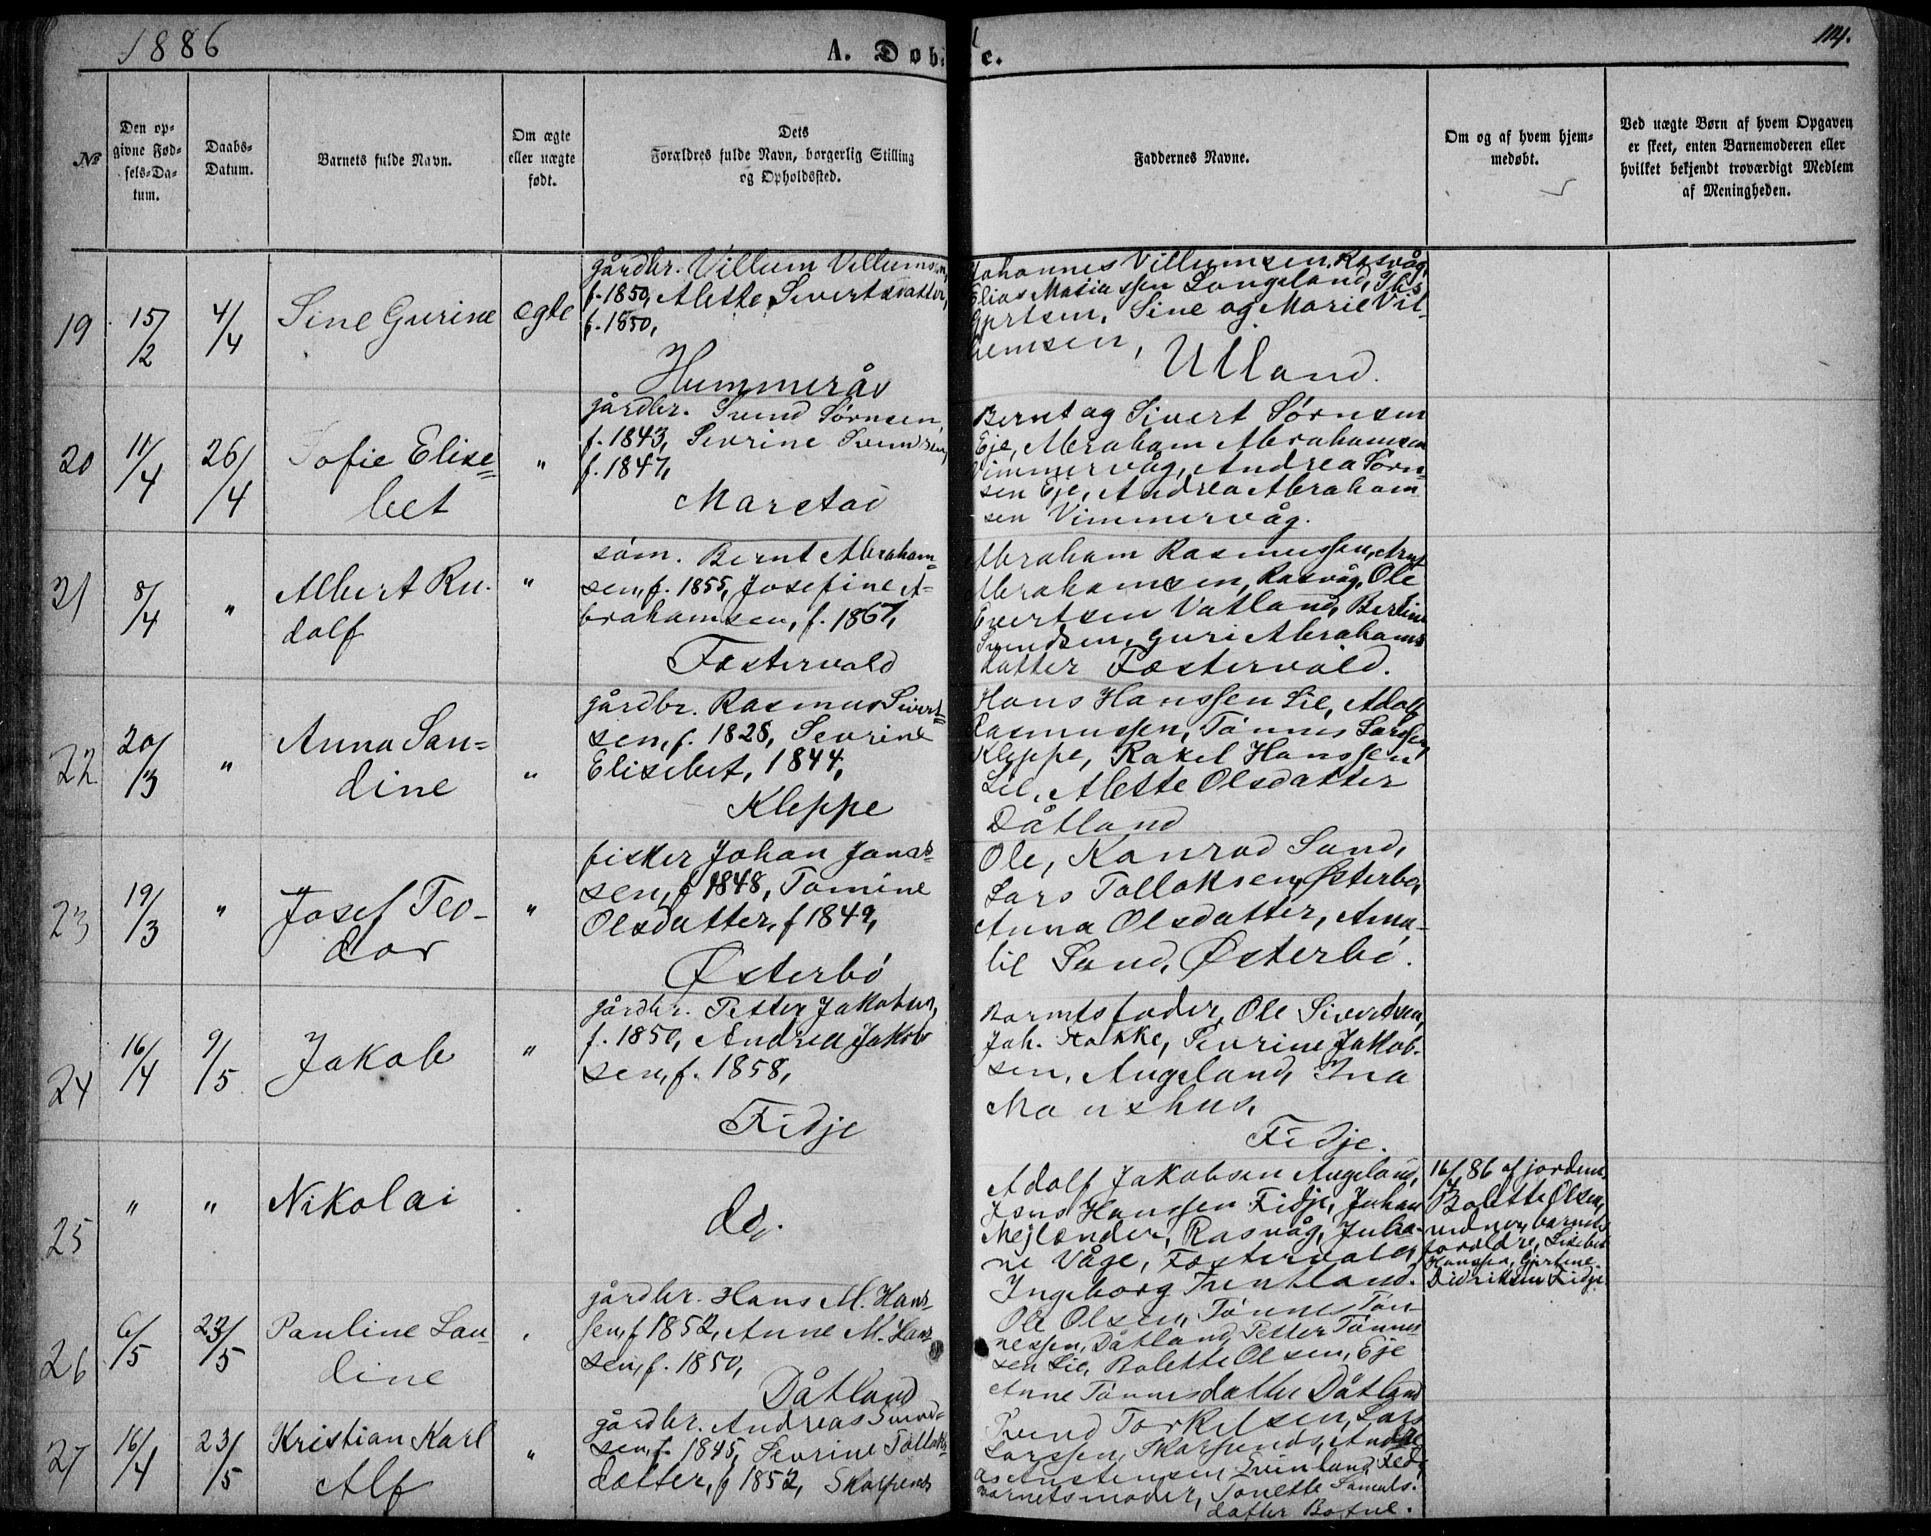 1886
A. Døb
c.
114.
№
Den op-
givne Fød-
sels-Da-
tum.
Daabs-
Datum.
Barnets fulde Navn.
Om ægte
eller uægte
født.
Dets
Forældres fulde Navn, borgerlig Stilling
og Opholdssted.
Faddernes Navne.
Om og af hvem hjem-
medøbt.
Ved uægte Børn af hvem Opgaven
er skeet, enten Barnemoderen eller
hvilket bekjendt troværdigt Medlem
af Menigheden.
19
15/2
4/4
Sine Gurine
egte
gårdbr. Villum Villumsen,
f. 1850, Alette Sivertsdatter,
f. 1850,
Hummerås
Johannes Villumsen, Rasvåg,
Elias Mathiassen Langeland,
Sine og Marie Vil-
lumsen,
Ulland.
20
11/4
26/4
Sofie Elise-
bet
"
gårdbr. Svend Sørnsen,
f. 1843, Sevrine Svendsen,
f. 1847,
Marstøi
Bernt og Sivert Sørnsen
Eje, Abraham Abrahamsen
Vimmervåg, Andrea Sørn-
sen Eje, Andrea Abraham
sen Vimmervåg.
21
8/4
"
Albert Ru-
dolf
"
søm. Bernt Abraham-
sen, f. 1855, Josefine A-
brahamsen, f. 1867,
Fostervold
Abraham Rasmussen, Arnt
Abrahamsen, Rasvåg, Ole
Evertsen Vatland, Bertine
Svendsen, Guri Abrahams
datter Fostervold.
22
20/3
"
Anna San-
dine
"
gårdbr. Rasmus Sivert-
sen, f. 1828, Sevrine
Elisebet, 1844,
Kleppe
Hans Hanssen Lie, Adolf
Rasmussen, Tønnes Larssen,
Kleppe, Rakel Hanssen
Lie, Alette Olsdatter
Dåtland
23
19/3
"
Josef Teo-
dor
"
fisker Johan Jonas-
sen, f 1848, Tomine
Olsdatter, f 1849,
Østerbø
Ole, Konrad Sand,
Lars Tollaksen, Østerbø,
Anna Olsdatter, Ama-
lie Sand, Østerbø.
24
16/4
9/5
Jakob
"
gårdbr. Petter Jakobsen,
f. 1850, Andrea Jakob
sen, f. 1858,
Fidje
Barnets fader, Ole Sivertsen,
Joh. Stakke, Sevrine Jakob-
sen, Angeland, Ina
Monshus,
Fidje.
25
"
"
Nikolai
.
do.
Adolf Jakobsen Angeland,
Jens Hanssen Fidje, Johan
Mejlænder, Rasvåg, Juha-
ne Våge, Fostervold,
Ingeborg Trentland.
16/4 86 af jordem.
Bolette Olsen,
nærv barnets
forældre, Lisebet
Hanssen, Gjertine
Didriksen Fidje
26
6/5
23/5
Pauline Lau
dine
.
gårdbr. Hans M. Hans-
sen, f 1852, Anne M. Hans
sen, f. 1850,
Dåtland
Ole Olsen, Tønnes Tøn
nessen, Dåtland, Petter Tønnes-
sen Lie, Bolette Olsen, Eje
Anne Tønnesdatter Dåtland
27
16/4
23/5
Kristian Karl
Alf
"
gårdbr. Andreas Svend-
sen, f. 1845, Sevrine Tollaks
datter, f 1852, Skarpenes
Svend Torkelsen, Lars
Larssen, Skarpenes, Andre
as Austensen Svinland, Feda
barnets moder, Tonette Samuels.
datter Botne.